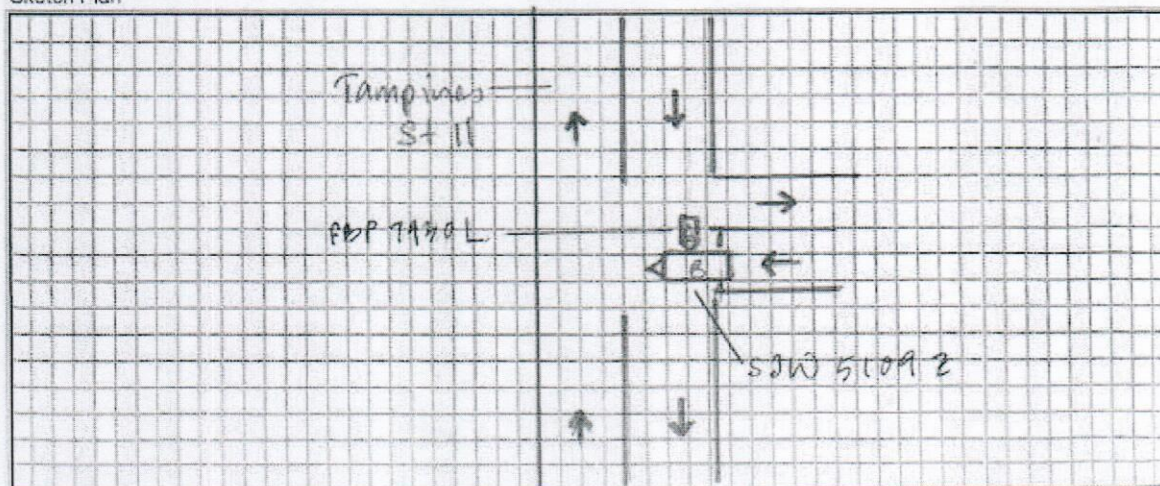 Sketch Plan
Tampines
St 11
FBP 7430 L
B
SJW 5109 Z